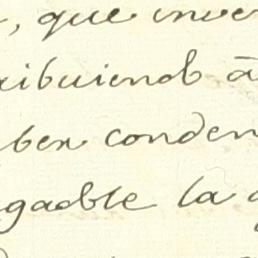 , que inve
ribuiendo à
ber conden
gadole la